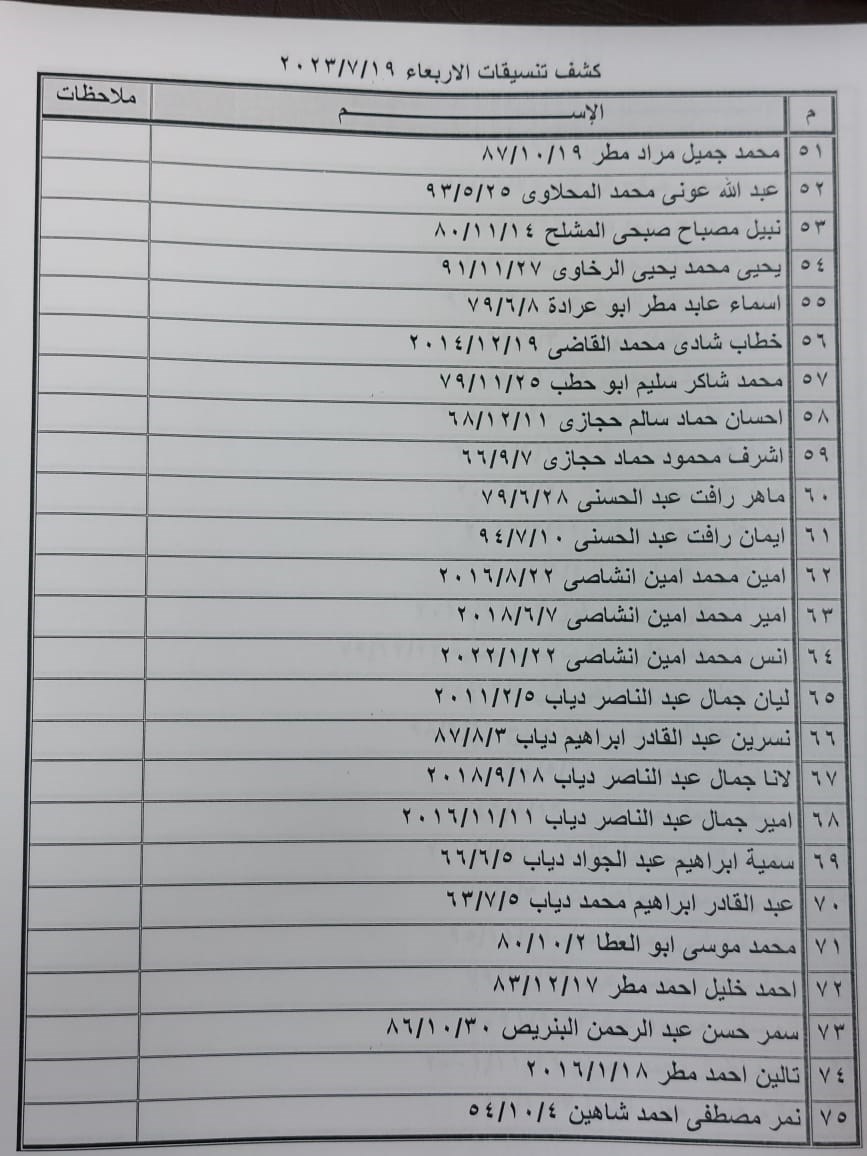 كشف تنسيقات الاربعاء ٢٠٢٣/٧/١٩
م الإســـــم ملاحظات
٥١ محمد جميل مراد مطر ٨٧/١٠/١٩
٥٢ عبد الله عونى محمد المحلاوى ٩٣/٥/٢٥
٥٣ نبيل مصباح صبحى المشلح ٨٠/١١/١٤
٥٤ يحيى محمد يحيى الرخاوى ٩١/١١/٢٧
٥٥ اسماء عابد مطر ابو عرادة ٧٩/٦/٨
٥٦ خطاب شادى محمد القاضى ٢٠١٤/١٢/١٩
٥٧ محمد شاكر سليم ابو حطب ٧٩/١١/٢٥
٥٨ احسان حماد سالم حجازى ٦٨/١٢/١١
٥٩ اشرف محمود حماد حجازى ٦٦/٩/٧
٦٠ ماهر رافت عبد الحسنى ٧٩/٦/٢٨
٦١ ايمان رافت عبد الحسنى ٩٤/٧/١٠
٦٢ امين محمد امين انشاصى ٢٠١٦/٨/٢٢
٦٣ امير محمد امين انشاصى ٢٠١٨/٦/٧
٦٤ انس محمد امين انشاصى ٢٠٢٢/١/٢٢
٦٥ ليان جمال عبد الناصر دياب ٢٠١١/٢/٥
٦٦ نسرين عبد القادر ابراهيم دياب ٨٧/٨/٣
٦٧ لانا جمال عبد الناصر دياب ٢٠١٨/٩/١٨
٦٨ امير جمال عبد الناصر دياب ٢٠١٦/١١/١١
٦٩ سمية ابراهيم عبد الجواد دياب ٦٦/٦/٥
٧٠ عبد القادر ابراهيم محمد دياب ٦٣/٧/٥
٧١ محمد موسى ابو العطا ٨٠/١٠/٢
٧٢ احمد خليل احمد مطر ٨٣/١٢/١٧
٧٣ سمر حسن عبد الرحمن البنريص ٨٦/١٠/٣٠
٧٤ تالين احمد مطر ٢٠١٦/١/١٨
٧٥ نمر مصطفى احمد شاهين ٥٤/١٠/٤